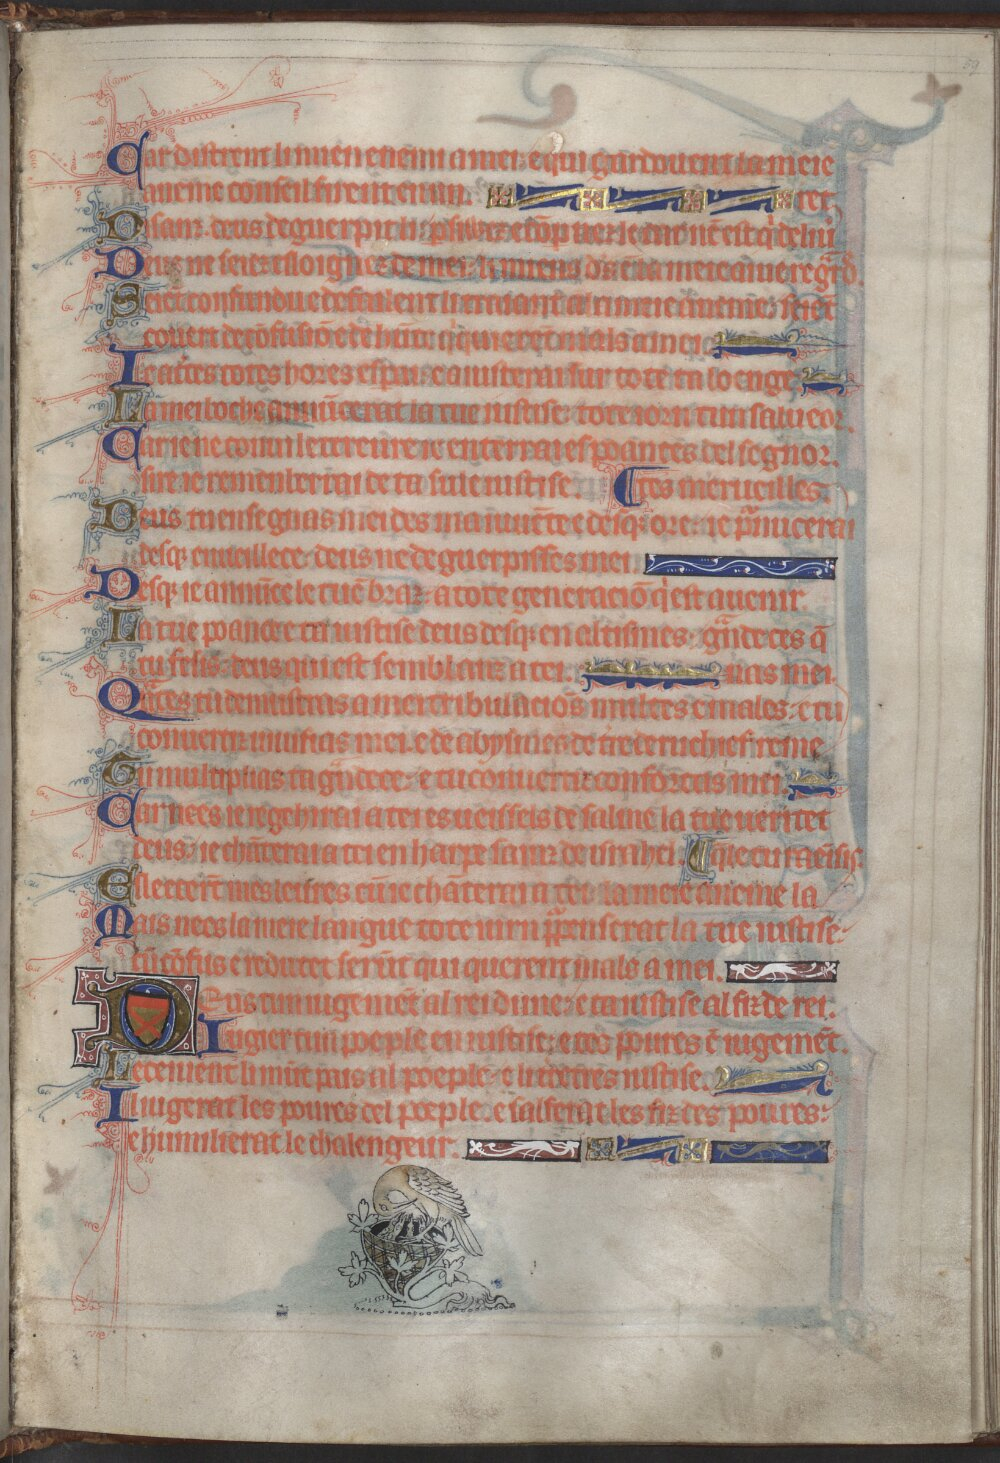 Car distrent li mien enemi a mei: e qui gardouent la meie
aneme conseil firent en un. ret
Disanz deus deguerpit li
Deus ne seies esloignez de mei: li miens d's en la meie aiue regard.
Seient confundu e defaillent li traiant a la meie aneme: seiēt
couert de cōfusiōe e de hūte qui quierēt mals a mei
I eactes totes hores espair e aiusterai sur tote ta loenge
La meie boche annūcerat la tue iustise: tote iorn tun salueor.
Car ie ne conui lettreure ie enterrai es poances del segnor.
sire ie remenberrai de ta sule iustise. tes merueilles.
Deus tu enseignas mei des ma iuuēte e desq' ore: ie p'nūcerai
desq' en ueillece: deus ne deguerpisses mei
Desq' ie annūce le tuē braz: a tote generaciō q' est a uenir
La tue poance e ta iustise deus desq' en altismes: g'ndeces q̄
tu feïs: deus qui est semblanz a tei. nas mei.
Q'ntes tu demustras a mei tribulaciōs multes e males: e tu
conuertiz uiuifias mei. e de abysmes de t're de rechief
Tu multiplias ta g'ndece: e tu conuertiz confortas mei.
Car nees ie regehirai a tei es ueissels de salme la tue ueritet
deus: ie chāterai a tei en harpe sainz de israhel.
Esleecerūt mes leures cū ie chāterai a tei: la meie aneme la
Mais nees la meie langue tote iurn p'penserat la tue iustise:
cū cōfus e redutet serūt qui querent mals a mei.
Deus tun iugemēt al rei dune: e ta iustise al fiz de rei.
Iugier tun poeple en iustise: e teō poures ē iugemēt.
Receiuent li mūt pais al poeple: e li tertres iustise.
Il iugerat les poures del poeple. e salferat les fiz des poures:
e humilierat le chalengeur.